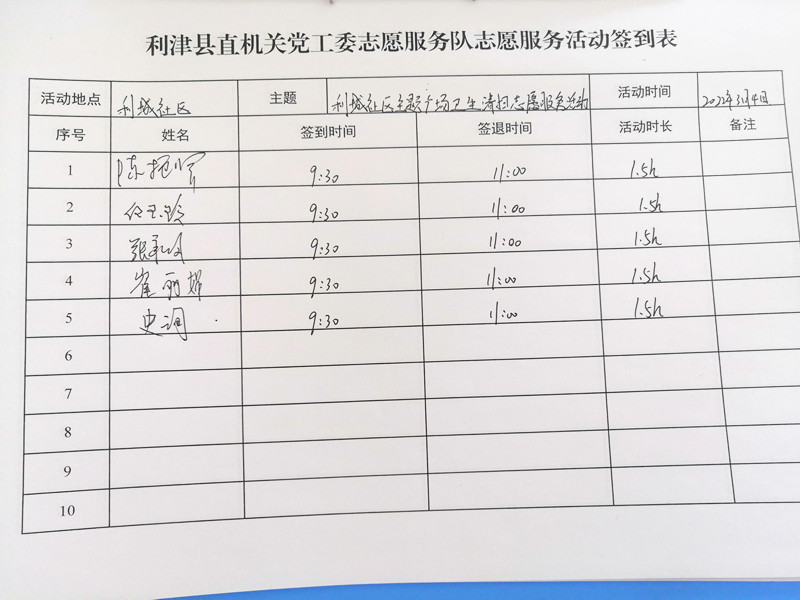 利津县直机关党工委志愿服务队志愿服务活动签到表
活动地点 利城社区 主题 利城社区主题广场卫生清扫志愿服务活动 活动时间 2022年3月4日
序号 姓名 签到时间 签退时间 活动时长 备注
1 陈 9:30 11:00 1.5h
2 任玉玲 9:30 11:00 1.5h
3 张 9:30 11:00 1.5h
4 崔丽娜 9:30 11:00 1.5h
5 史润 9:30 11:00 1.5h
6
7
8
9
10